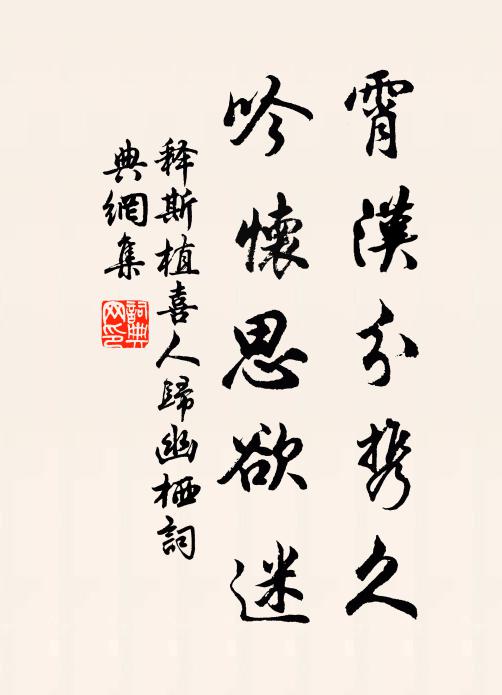 霄漢分携久
吟懷思欲迷
释斯植喜人歸幽栖詞
典網集
詞典网印